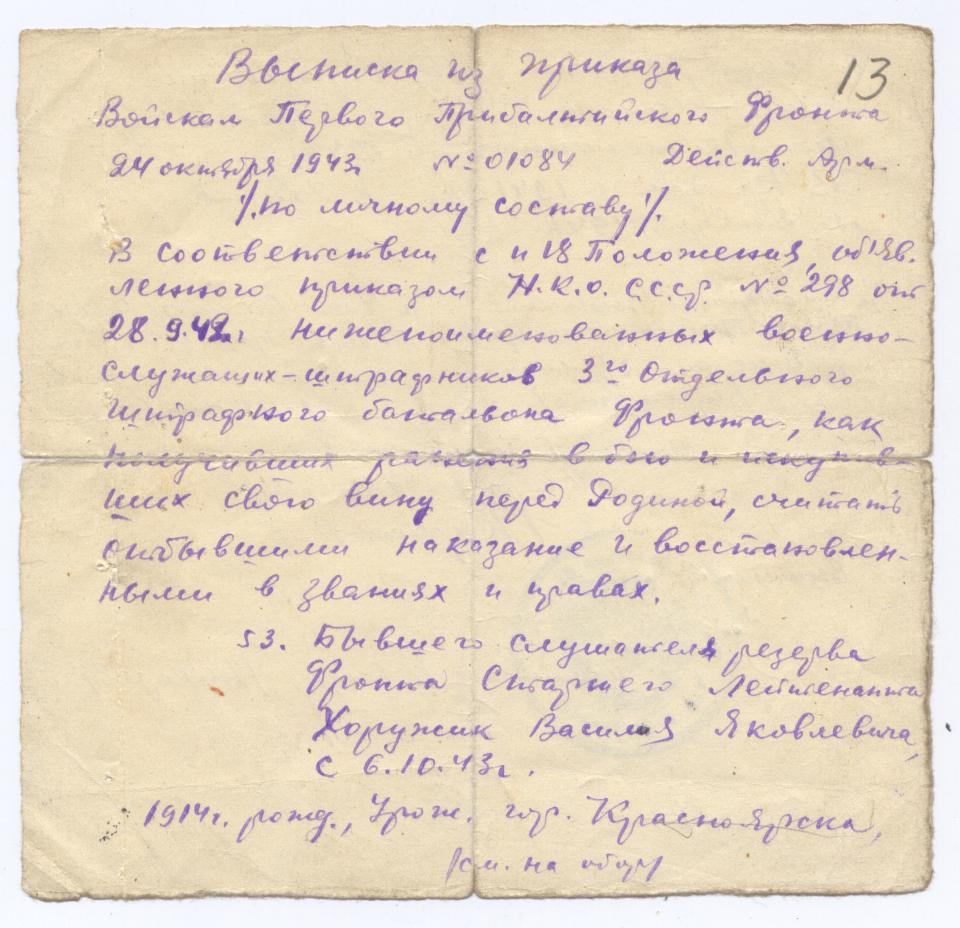 Выписка из приказа
13
Войскам Первого Прибалтийского Фронта
24 октября 1943г № 01084 Действ. Арм.
/.по личному составу/.
В соответствии с п 18 Положения, об'яв-
ленного приказом Н.К.О. С.С.С.р. № 298 от
28.9.42г нижепоименованных военно-
служащих-штрафников 3го Отдельного
Штрафного баталь­она Фронта, как
получивших ранения в бою и искупив-
ших свою вину перед Родиной, считать
отбывшими наказание и восстановлен-
ными в званиях и правах.
53. Бывшего слушателя резерва
Фронта Старшего Лейтенанта
Хоружик Василия Яковлевича,
с 6.10.43г.
1914г. рожд., Урож. гор. Красноярска,
/см. на обор/